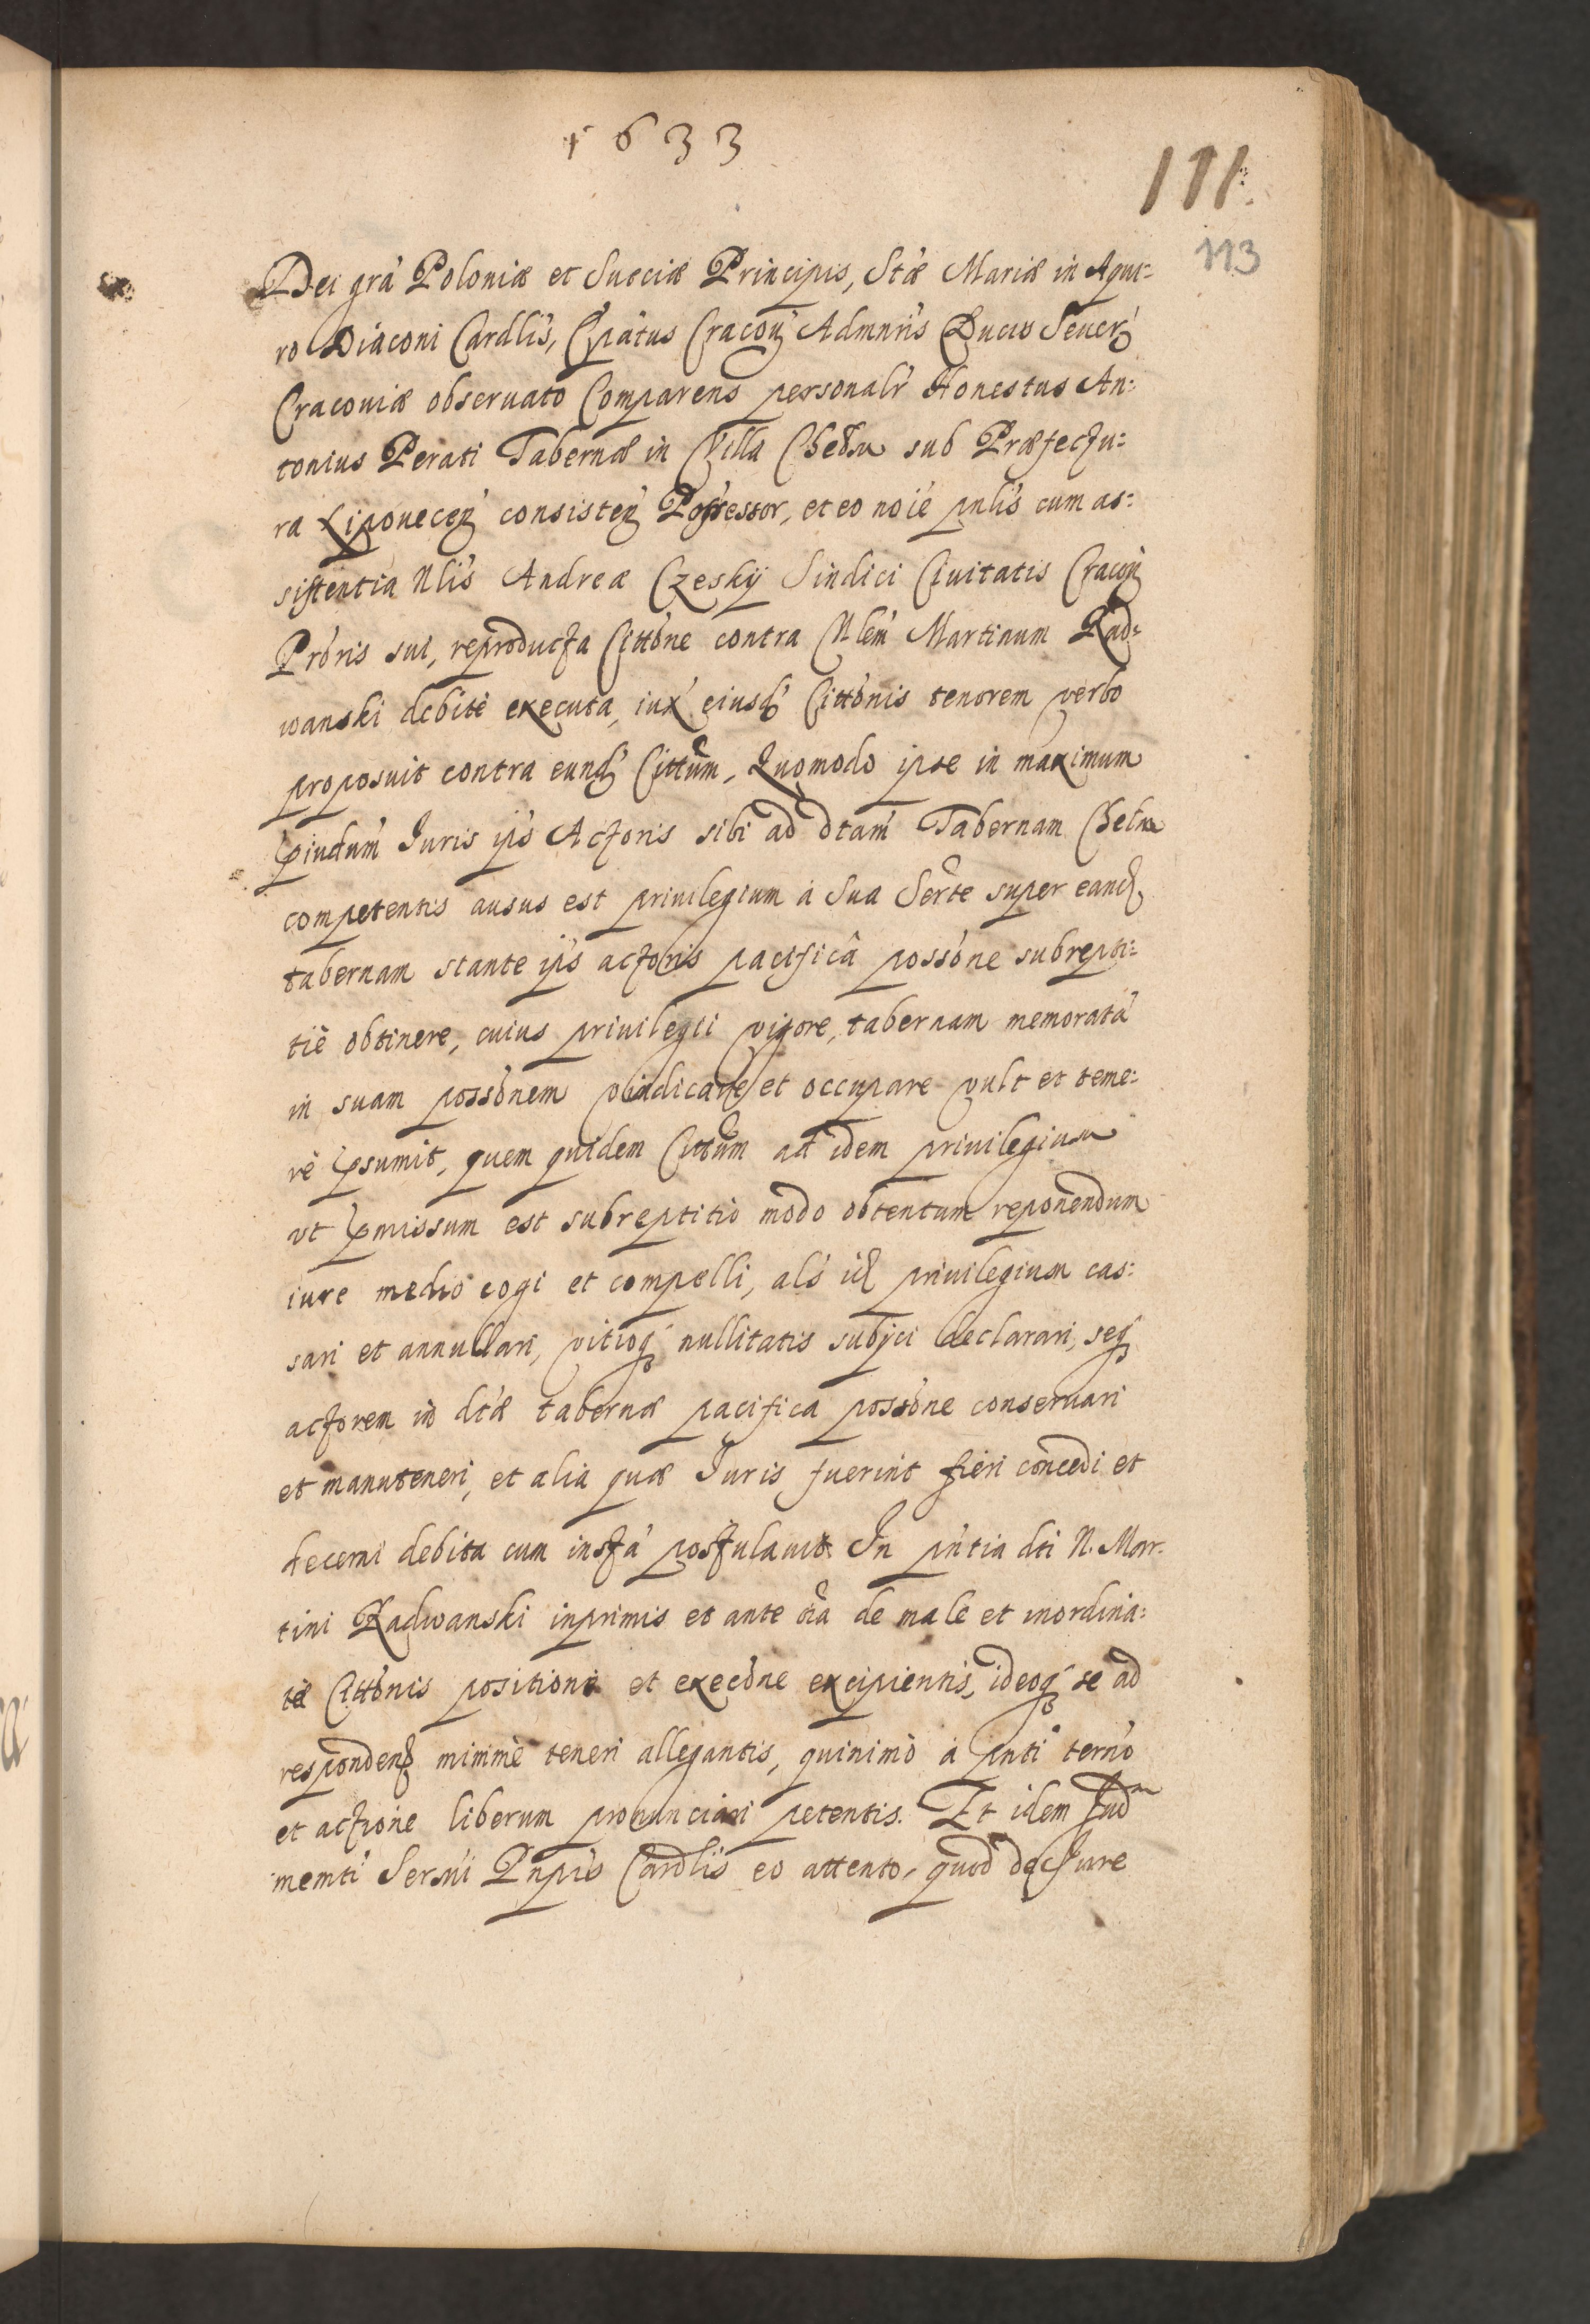 1633
111.
113
Dei grâ Poloniæ et Sueciæ Principis, Stæ Mariæ in Aqui=
ro Diaconi Cardlis, Epatus Cracouñ Admnris Ducis Seuerꝭ
Cracouiæ obseruato Comparens personalr Honestus An:
tonius Perati Tabernæ in Villa Chełm sub Præfectu=
ra Lipoueceñ consisteñ Possessor, et eo noie pnlis cum as:
sistentia Nlis Andreæ Czeskij Sindici Ciuitatis Cracouñ
Prôris sui, reproducta Cittône contra Nlem Martinum Rad=
wanski debitè executa, iux eiusd Cittônis tenorem verbo
proposuit contra eund Cittum, Quomodo ipse in maximum
piudum Iuris ips Actoris sibi ad dtam Tabernam Chelm
competentis ausus est priuilegium à Sua Serte super eand
tabernam stante ips actoris pacificâ possône subrepti=
tiè obtinere, cuius priuilegii vigore, tabernam memoratã
in suam possônem vindicare et occupare vult et teme=
rè psumit, quem quidem Cittum ad idem priuilegium
vt pmissum est subreptitio modo obtentum reponendum
iure medio cogi et compelli, als id priuilegium cas:
sari et annullari, vitioq nullitatis subijci declarari, seq
actorem in dtæ tabernæ pacifica possône conseruari
et manuteneri, et alia quæ Iuris fuerint fieri concedi et
decerni debita cum instâ postulauit. In pntia dti N. Mar:
tini Radwanski inprimis et ante oia de male et inordina:
tè Cittônis positione et execône excipientis, ideoq se ad
respondend minimè teneri allegantis, quinimò à pnti terno
et actione liberum pronunciari petentis. Et idem Iud
memti Sermi Pnpis Cardlis eo attento, quod de Iure